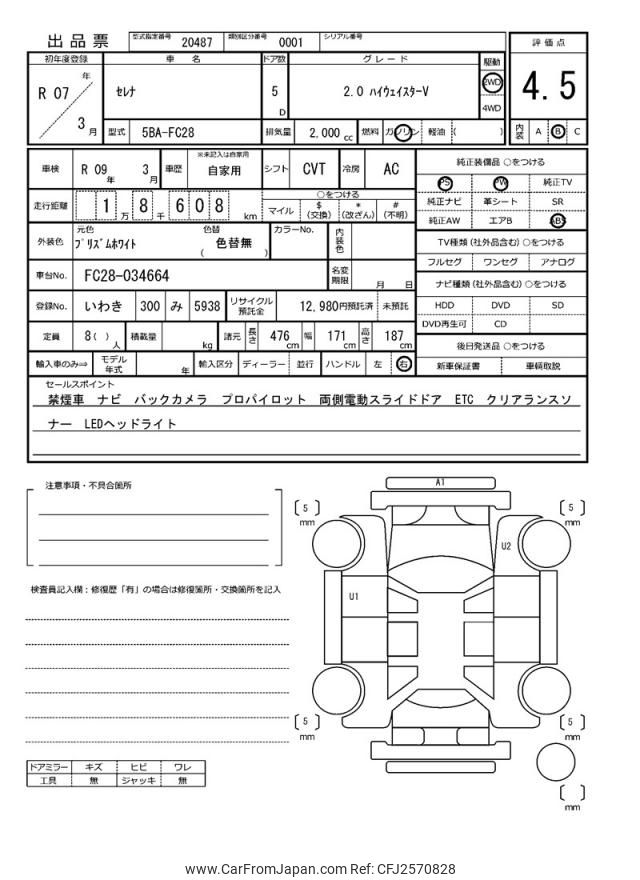 出品票
型式指定番号 20487 類別区分番号 0001 シリアル番号
評価点
4.5
内装 A B C
初年度登録 車名 ドア数 グレード 駆動
R 07 年 3 月
セレナ
5 D
2.0 ハイウェイスターV
2WD
4WD
型式 5BA-FC28 排気量 2,000 cc 燃料 ガソリン 軽油 ( )
車検 R 09 年 3 月 車歴 ※未記入は自家用 自家用 シフト CVT 冷房 AC
走行距離 1 万 8 千 6 0 8 km
○をつける
マイル $(交換) *(改ざん) #(不明)
外装色 元色 プリズムホワイト 色替 ( 色替無 ) カラーNo. 内装色
車台No. FC28-034664 名変期限 月 日
登録No. いわき 300 み 5938 リサイクル預託金 12,980円預託済 未預託
定員 8( )人 積載量 kg 諸元 長さ 476 cm 幅 171 cm 高さ 187 cm
輸入車のみ⇒ モデル年式 年 輸入区分 ディーラー 並行 ハンドル 左 右
純正装備品 ○をつける
PS PW 純正TV
純正ナビ 革シート SR
純正AW エアB ABS
TV種類 (社外品含む) ○をつける
フルセグ ワンセグ アナログ
ナビ種類 (社外品含む) ○をつける
HDD DVD SD
DVD再生可 CD
後日発送品 ○をつける
新車保証書 車輌取説
セールスポイント
禁煙車 ナビ バックカメラ プロパイロット 両側電動スライドドア ETC クリアランスソ
ナー LEDヘッドライト
注意事項・不具合箇所
検査員記入欄：修復歴「有」の場合は修復箇所・交換箇所を記入
ドアミラー キズ ヒビ ワレ
工具 無 ジャッキ 無
A1
[ 5 ] mm
[ 5 ] mm
U2
U1
[ 5 ] mm
[ 5 ] mm
[ ] mm
www.CarFromJapan.com Ref: CFJ2570828